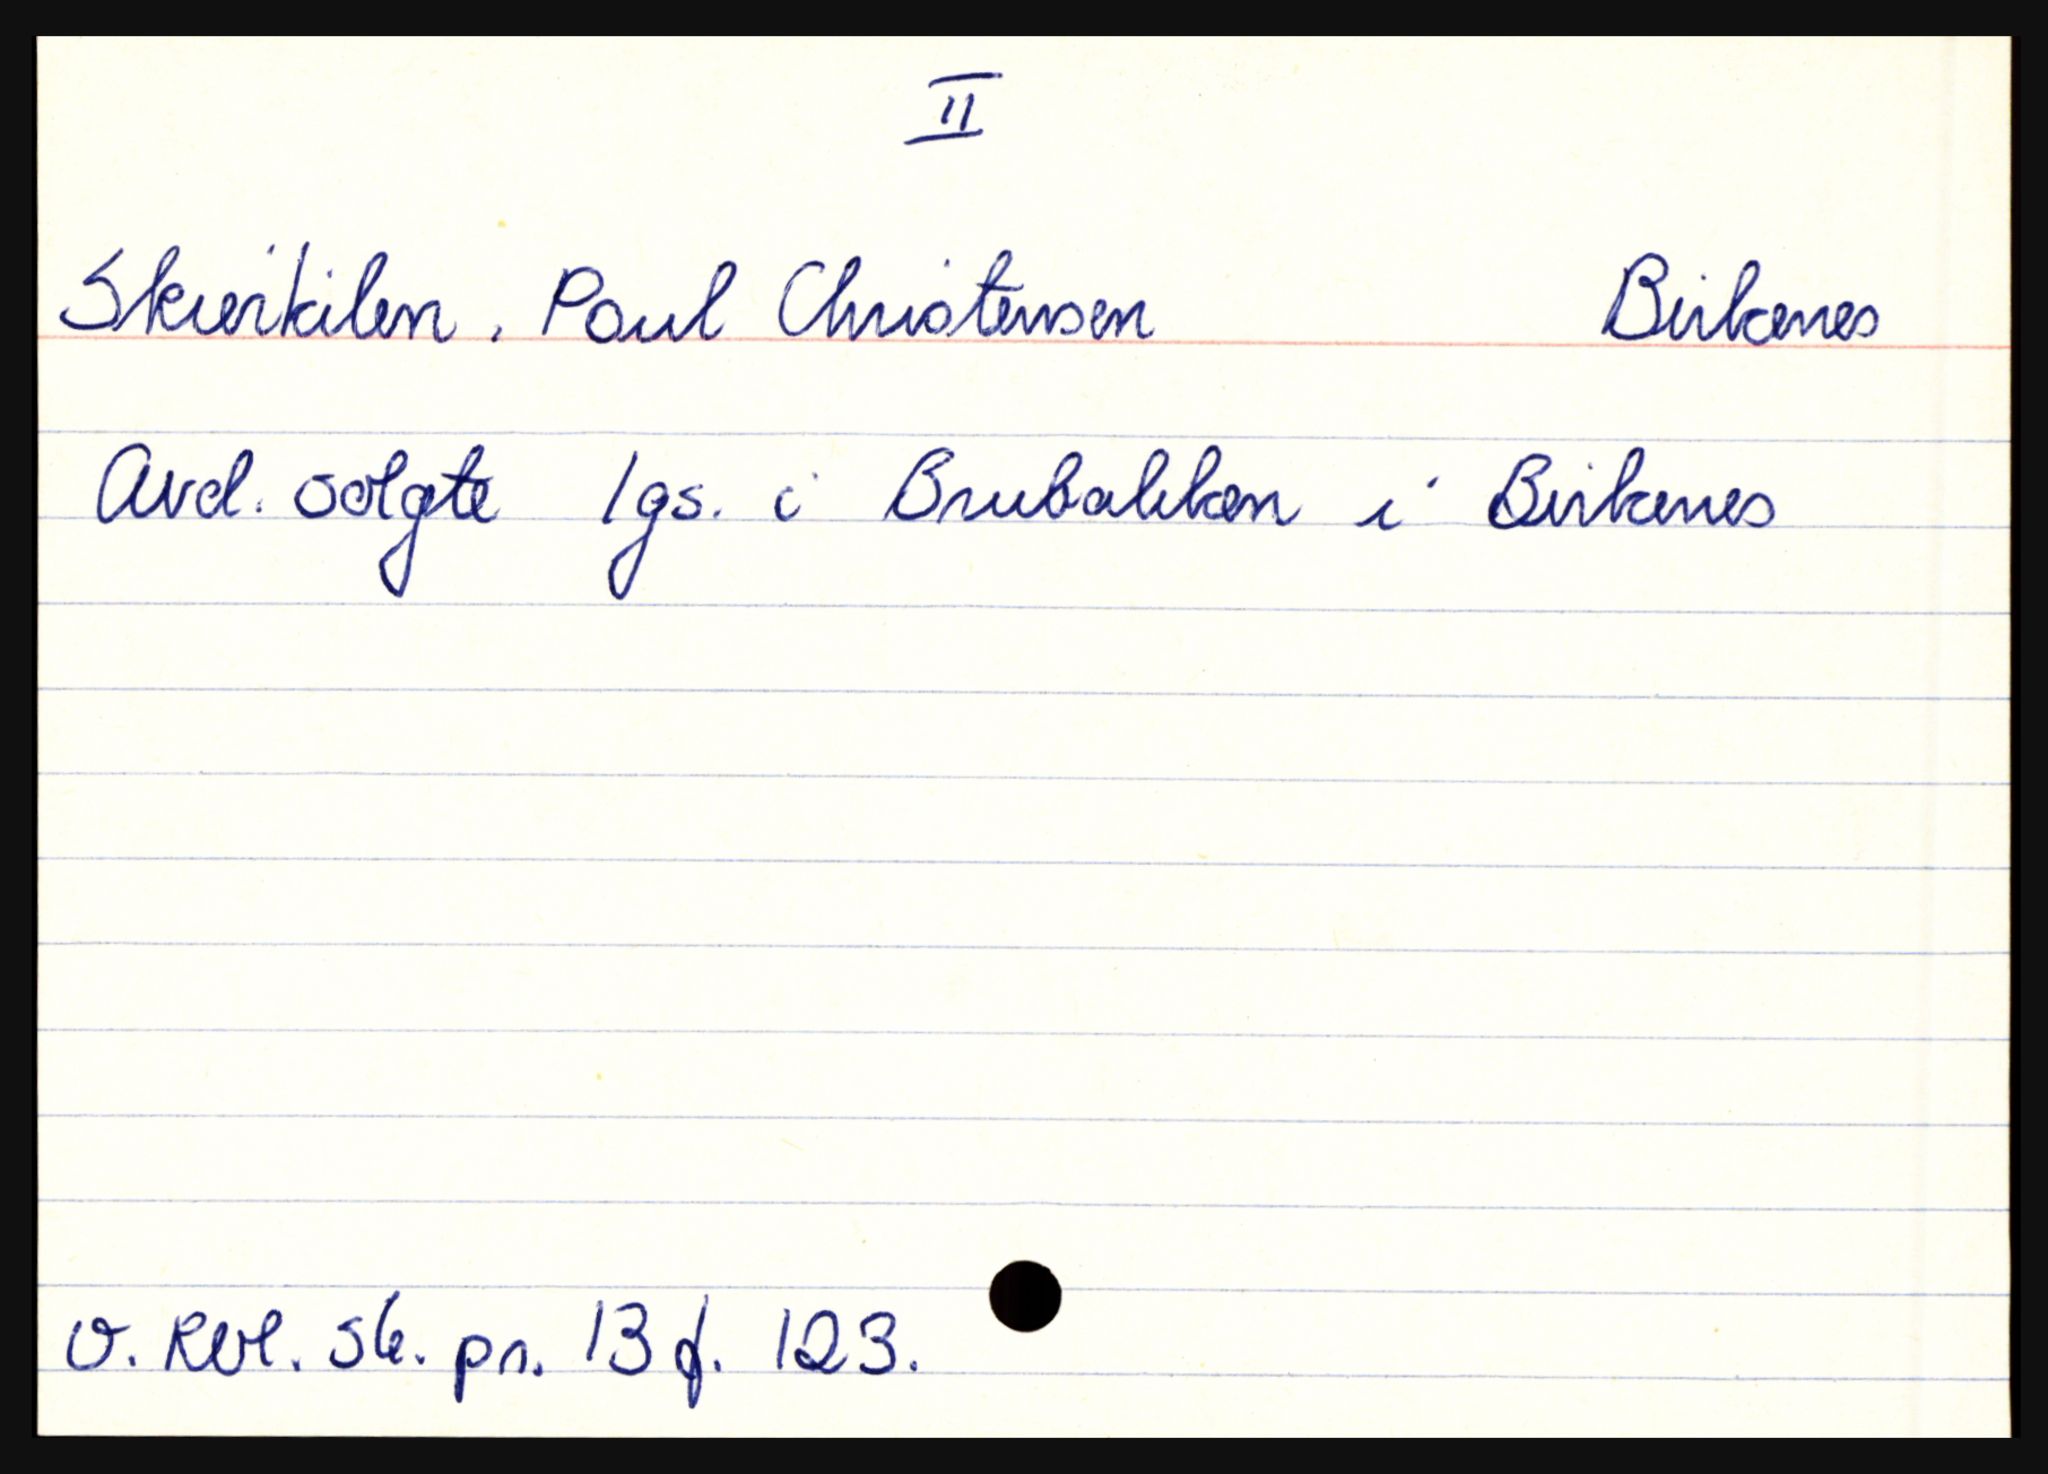 II
Skreikilen, Poul Christensen Birkenes
Avd. solgte 1 gs. i Brubakken i Birkenes
v. Rvl. sk. pr. 13 f. 123.